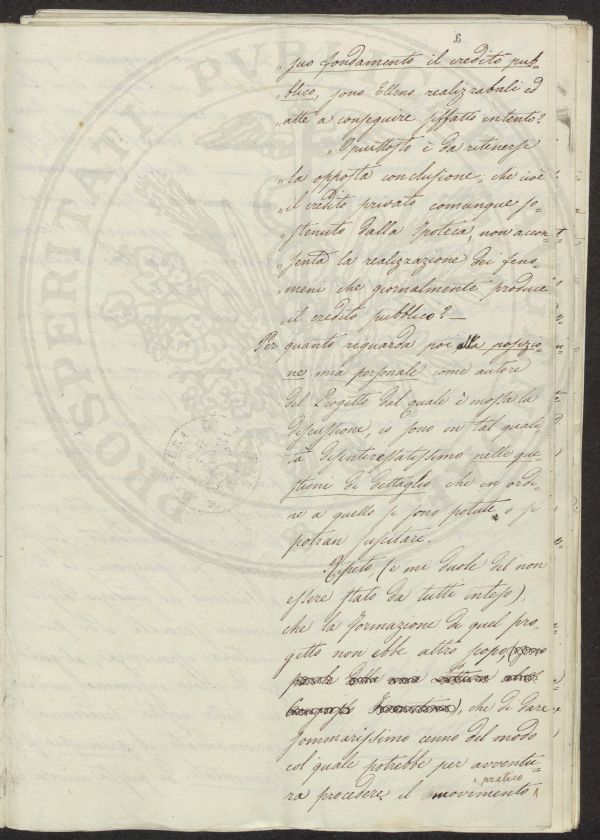 6
„ suo fondamento il credito pub-
„ blico, sono Elleno realizzabili ed
„ atte a conseguire siffatto intento?
„ O piuttosto è da ritenersi
„ la opposta conclusione, che cioè
„ il credito privato comunque so-
„ stenuto dalla Ipoteca, non accon-
„ senta la realizzazione dei feno-
„ meni che giornalmente produce
„ il credito pubblico? —
Per quanto reguarda poi alla posizio-
ne mia personale come autore
del Progetto dal quale è mossa la
discussione, io sono in tal quali
tà disinteressatissimo nelle que
stioni di dettaglio che in ordi-
ne a quello si sono potute, o si
potran suscitare.
Ripeto, (e mi duole del non
essere stato da tutti inteso),
che la formazione di quel pro-
getto non ebbe altro scopo, (sono
parole della mia Lettera
), che di dare
sommarissimo cenno del modo
col quale potrebbe per avventu-
pratico
ra procedere il movimento
PROSPERITATI PVBLICAE